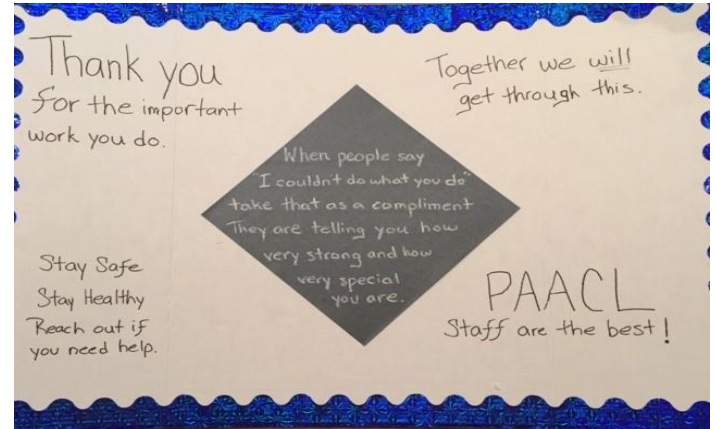 Thank you
for the important
work you do.
Together we will
get through this.
When people say
"I couldn't do what you do"
take that as a compliment
They are telling you how
very strong and how
very special
you are.
Stay Safe
Stay Healthy
Reach out if
you need help.
PAACL
Staff are the best!